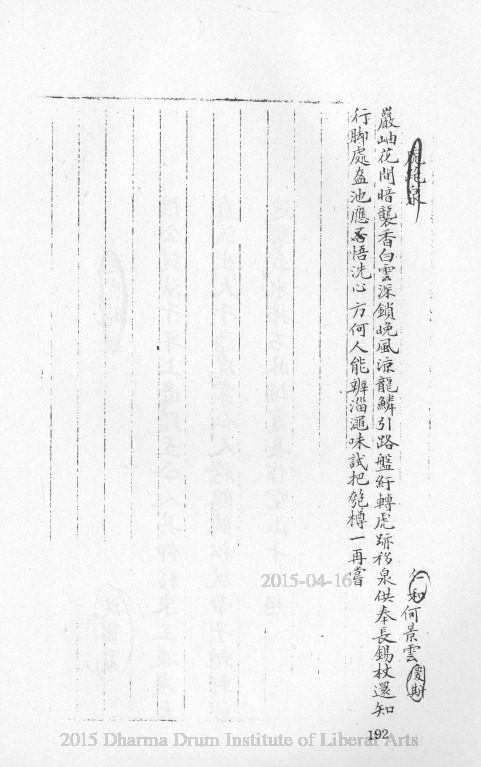 虎跑泉
仁和何景雲慶期
巖岫花開暗襲香白雲深鎖晚風涼龍鱗引路盤紆轉虎跡移泉供奉長錫杖還知
行脚處盔池應吾悟洗心方何人能辨淄澠味試把匏樽一再嘗
192
2015-04-16
2015 Dharma Drum Institute of Liberal Arts